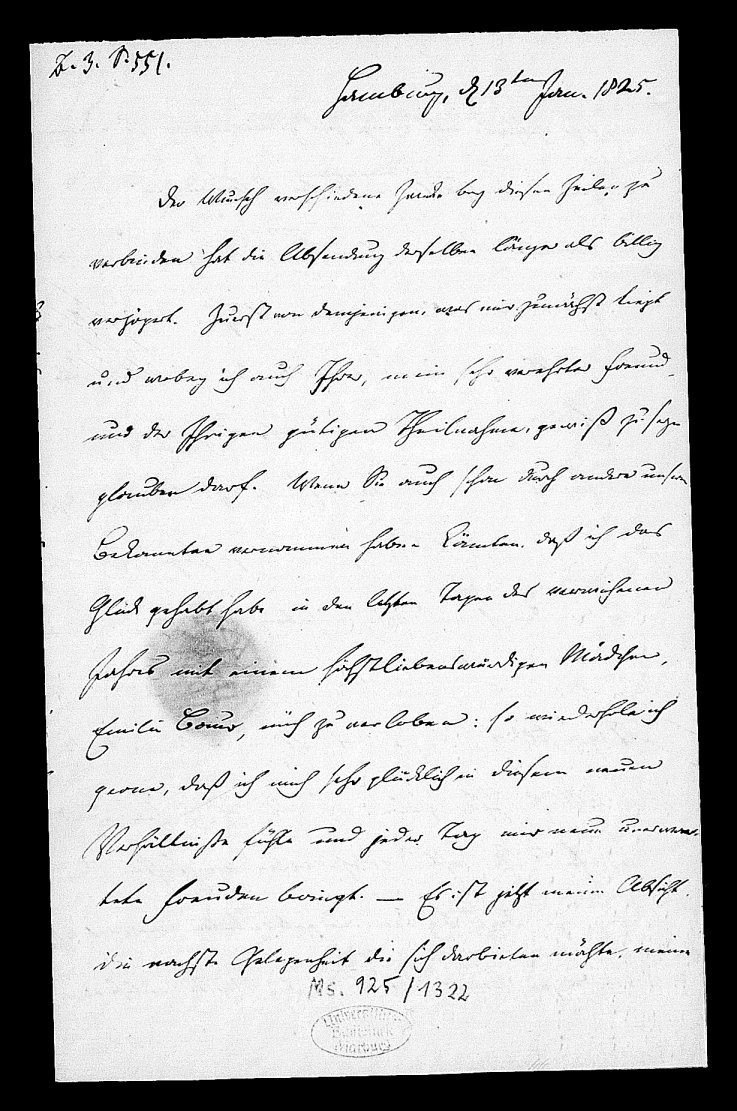 Z. 3. S. 551.
Hamburg, d 13ten Jan. 1825.
Der Wunsch verschiedene bey diesen Zeilen zu
verbinden hat die Absendung derselben länger als billig
verzögert. Zuerst von demjenigen, was mir zunächst liegt
und wobey ich auch Ihrer, mein sehr verehrter Freund
und der Ihrigen gütigen Theilnahme, gewiß zu seyn
glauben darf. Wenn Sie auch schon durch andere unsrer
Bekannten vernommen haben könnten, daß ich das
Glück gehabt habe in den letzten Tagen des verwichenen
Jahres mit einem höchstliebenswürdigen Mädchen,
Emilie mich zu verloben: so wiederhole ich
gerne, daß ich mich sehr glücklich in diesem neuen
Verhältnisse fühle und jeder Tag mir neue unerwar-
tete Freuden bringt. — Es ist jetzt meine Absicht
die nächste Gelegenheit die sich darbieten möchte, meine
Ms. 925/1322
Universitäts
Bibliothek
Marburg